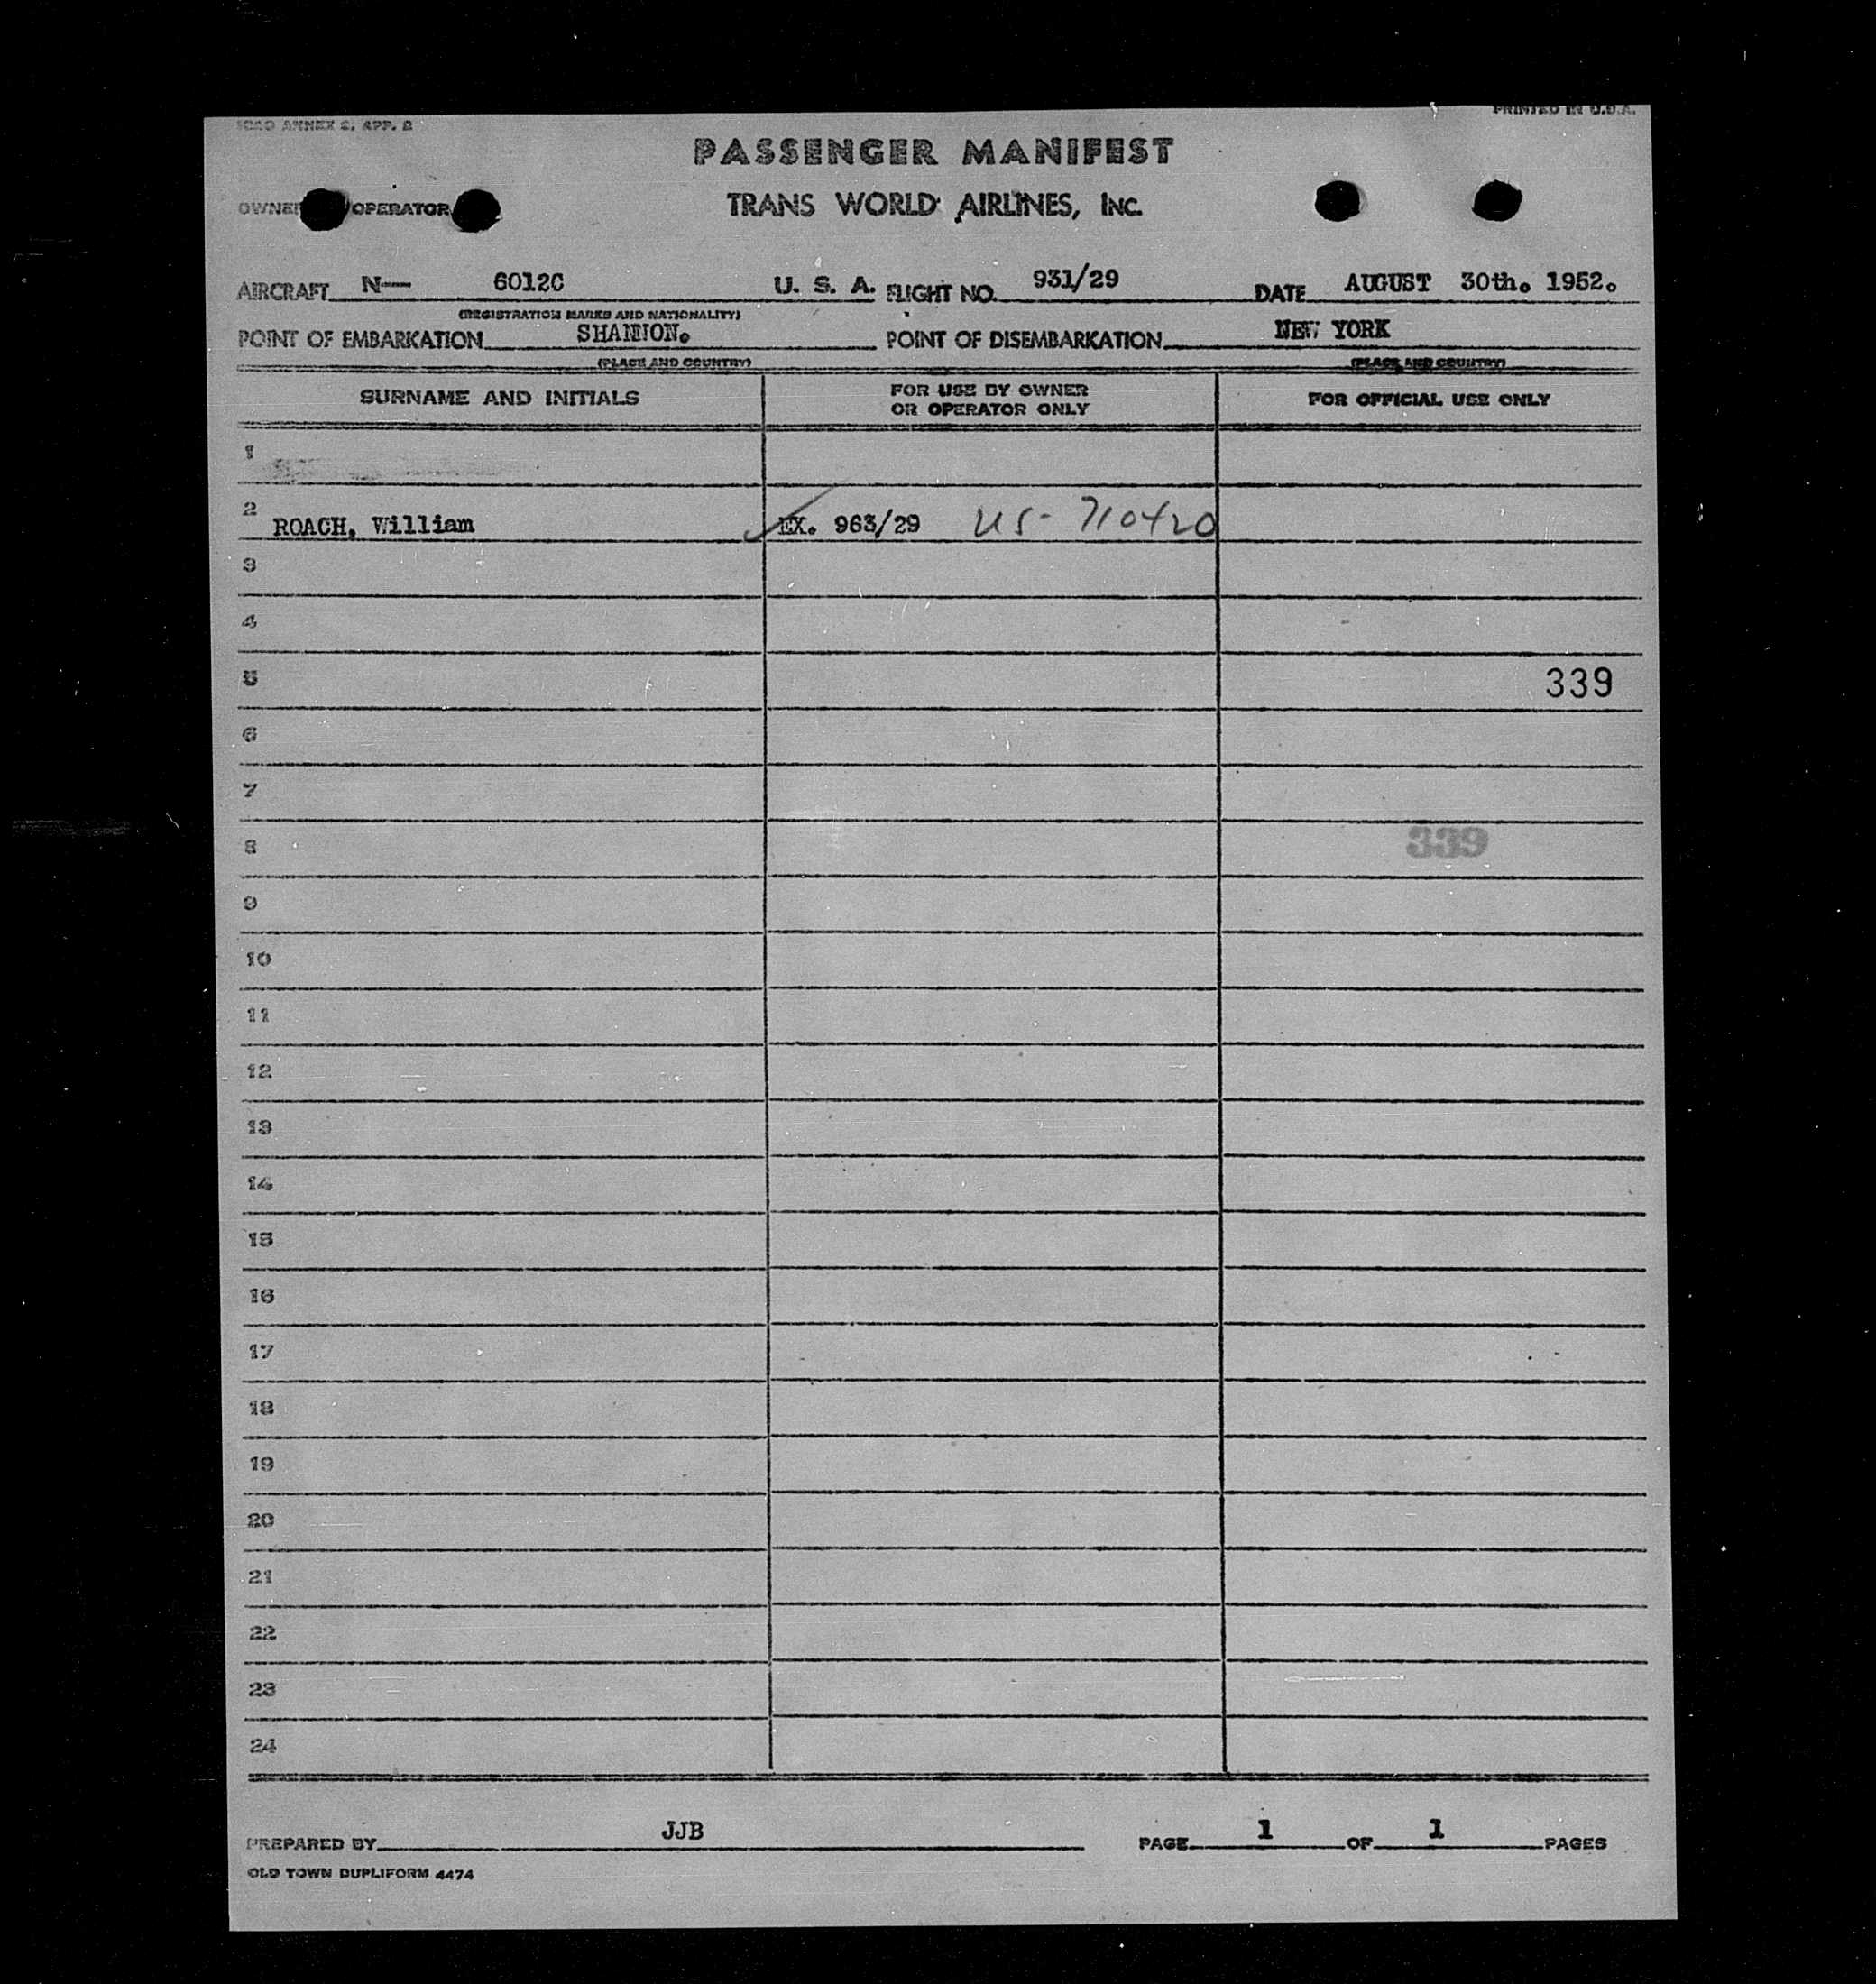 ICAO ANNEX 9, APP. 2
PRINTED IN U.S.A.
PASSENGER MANIFEST
OPERATOR TRANS WORLD AIRLINES, INC.
AIRCRAFT N— 6012C U. S. A. FLIGHT NO. 931/29 DATE AUGUST 30th. 1952.
(REGISTRATION MARKS AND NATIONALITY)
POINT OF EMBARKATION SHANNON. POINT OF DISEMBARKATION NEW YORK
(PLACE AND COUNTRY) (PLACE AND COUNTRY)
SURNAME AND INITIALS FOR USE BY OWNER OR OPERATOR ONLY FOR OFFICIAL USE ONLY
1
2 ROACH, William EX. 963/29 US- 710420
3
4
5 339
6
7
8 339
9
10
11
12
13
14
15
16
17
18
19
20
21
22
23
24
PREPARED BY JJB PAGE 1 OF 1 PAGES
OLD TOWN DUPLIFORM 4474